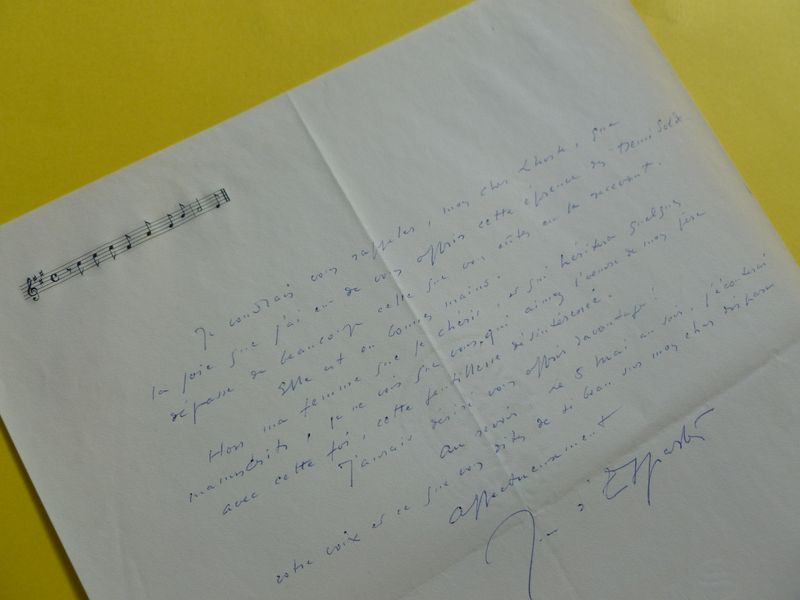 Je voudrais vous rappeler, mon cher Lhoste, que
la joie que j'ai eu de vous offrir cette épreuve des Demi-Solde
dépasse de beaucoup celle que vous eûtes en la recevant.
Elle est en bonnes mains.
Hors ma femme que je chéris, et qui héritera quelques
manuscrits, je ne vois que vous qui aimez l'œuvre de mon père
avec cette foi, cette gentillesse désintéressée.
J'aurais désiré vous offrir davantage!
Au revoir. Le 5 mai au soir, j'écouterai
votre voix et ce que vous dites de si beau sur mon cher disparu
Affectueusement
Jean d'Esparbès